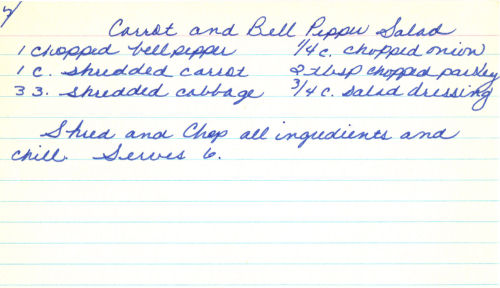 Carrot and Bell Pepper Salad
1 chopped bell pepper 1/4 c. chopped onion
1 c. shredded carrot 2 tbsp chopped parsley
3 3. shredded cabbage 3/4 c. salad dressing
Shred and Chop all ingredients and
chill. Serves 6.